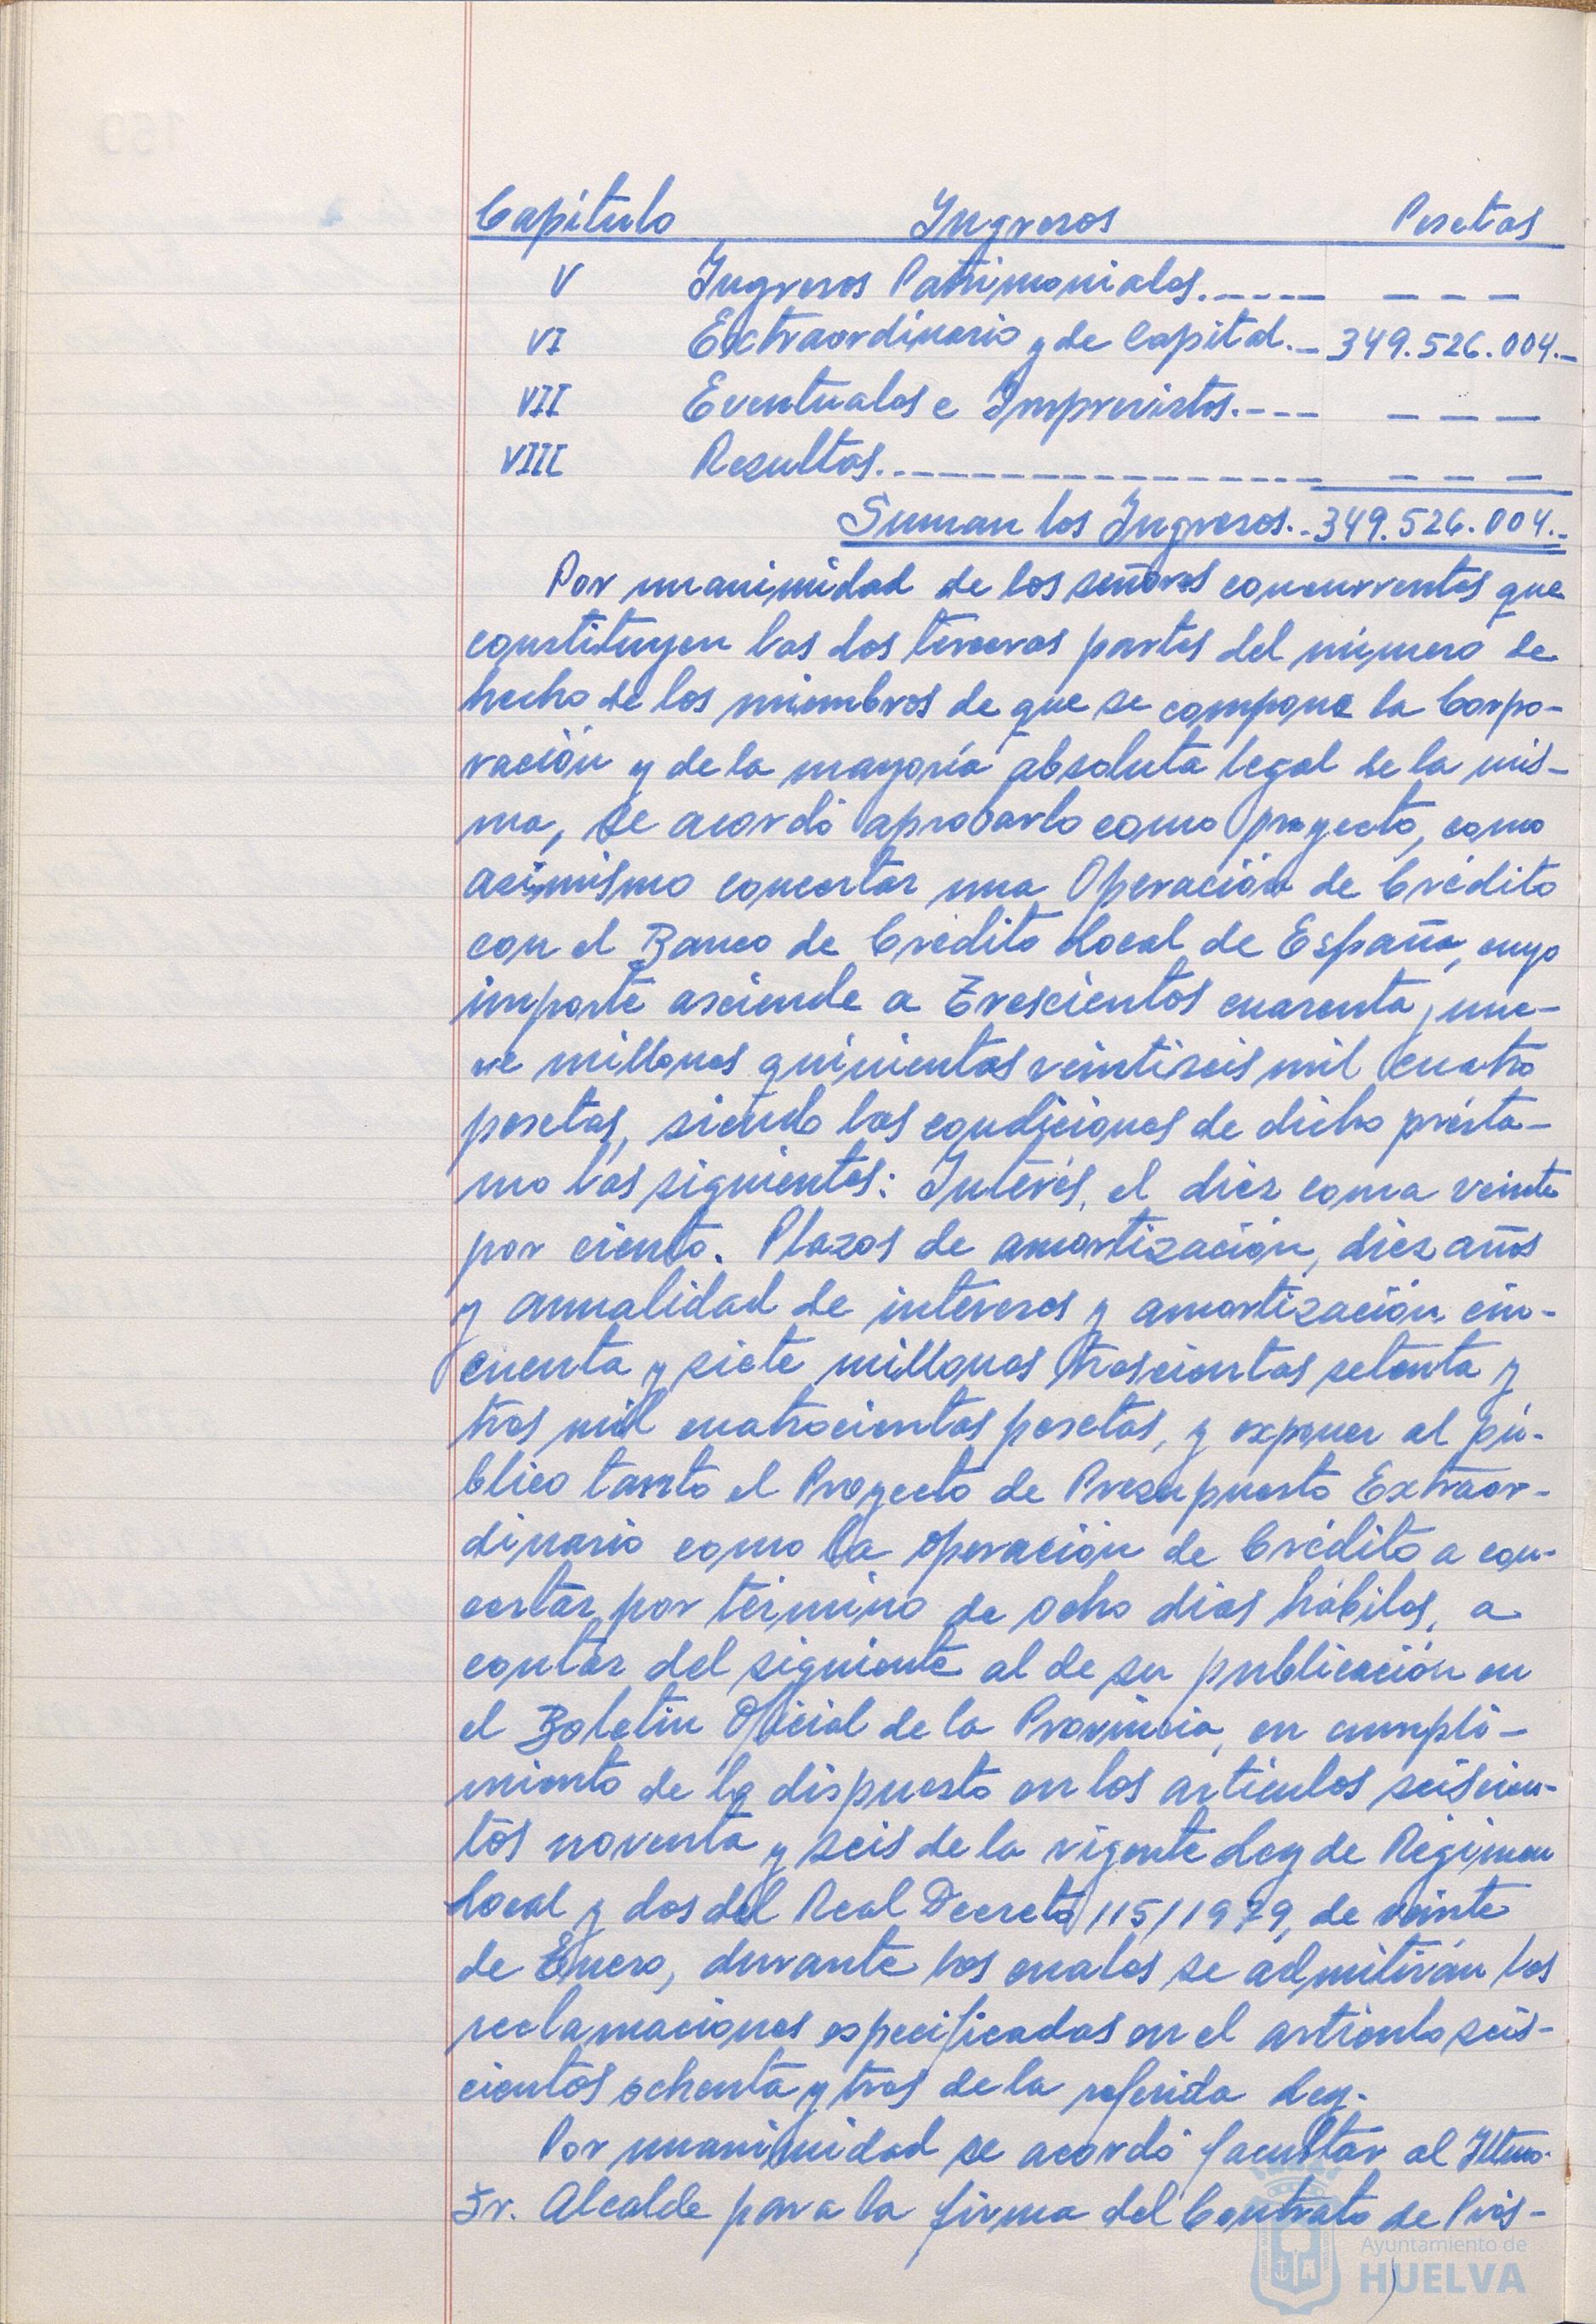 Capítulo Ingresos Pesetas
V Ingresos Patrimoniales.---- - - -
VI Extraordinario y de Capital.- 349.526.004.-
VII Eventuales e Imprevistos.--- - - -
VIII Resultas.------------------ - - -
Suman los Ingresos.- 349.526.004.-
Por unanimidad de los señores concurrentes que
constituyen las dos terceras partes del número de
hecho de los miembros de que se compone la Corpo-
ración y de la mayoría absoluta legal de la mis-
ma, se acordó aprobarlo como proyecto, como
asimismo concertar una Operación de Crédito
con el Banco de Crédito Local de España, cuyo
importe asciende a Trescientos cuarenta y nue-
ve millones quinientas veintiseis mil cuatro
pesetas, siendo las condiciones de dicho présta-
mo las siguientes: Interés, el diez coma veinte
por ciento. Plazos de amortización, diez años
y anualidad de intereses y amortización cin-
cuenta y siete millones trescientas setenta y
tres mil cuatrocientas pesetas, y exponer al pú-
blico tanto el Proyecto de Presupuesto Extraor-
dinario como la operación de Crédito a con-
certar, por término de ocho días hábiles, a
contar del siguiente al de su publicación en
el Boletín Oficial de la Provincia, en cumpli-
miento de lo dispuesto en los artículos seiscien-
tos noventa y seis de la vigente Ley de Régimen
Local y dos del Real Decreto 115/1979, de veinte
de Enero, durante los cuales se admitirán las
reclamaciones especificadas en el artículo seis-
cientos ochenta y tres de la referida Ley.
Por unanimidad se acordó facultar al Iltmo.
Sr. Alcalde para la firma del Contrato de Prés-
Ayuntamiento de
HUELVA